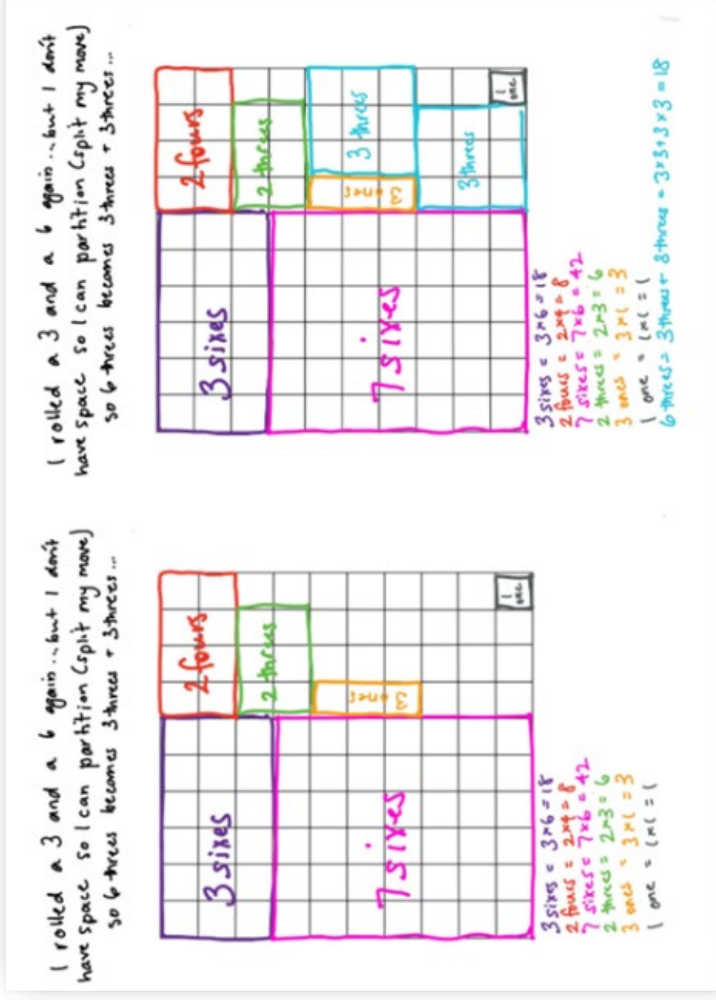 I rolled a 3 and a 6 again...but I don't
have space so I can partition (split my move)
so 6 threes becomes 3 threes + 3 threes...
3 sixes
2 fours
2 threes
7 sixes
1 one
3 sixes = 3x6 = 18
2 fours = 2x4 = 8
7 sixes = 7x6 = 42
2 threes = 2x3 = 6
3 ones = 3x1 = 3
1 one = 1x1 = 1
I rolled a 3 and a 6 again...but I don't
have space so I can partition (split my move)
so 6 threes becomes 3 threes + 3 threes...
3 sixes
2 fours
2 threes
3 threes
3 threes
7 sixes
1 one
3 sixes = 3x6 = 18
2 fours = 2x4 = 8
7 sixes = 7x6 = 42
2 threes = 2x3 = 6
3 ones = 3x1 = 3
1 one = 1x1 = 1
6 threes = 3 threes + 3 threes = 3x3+3x3 = 18